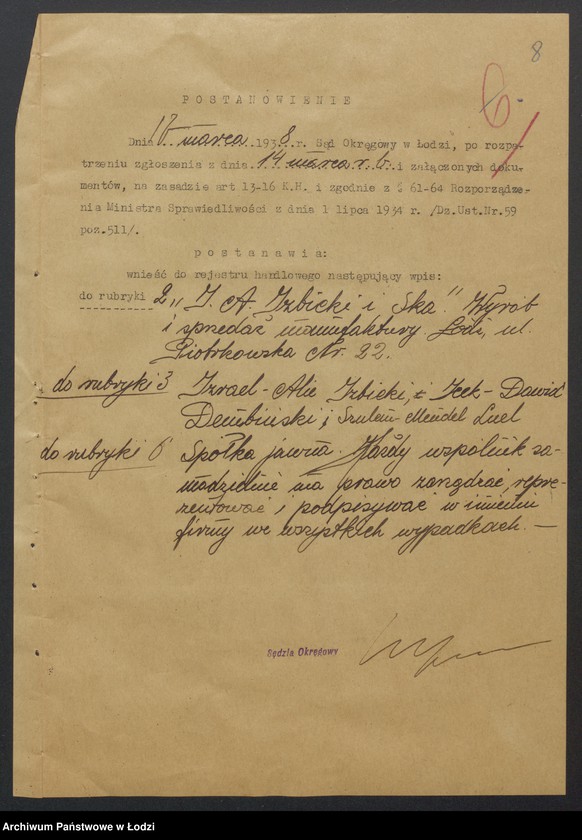 8
6
POSTANOWIENIE
Dnia 18 marca 1938.r. Sąd Okręgowy w Łodzi, po rozpa-
trzeniu zgłoszenia z dnia 14 marca r.b. i załączonych doku-
mentów, na zasadzie art 13-16 K.H. i zgodnie z § 61-64 Rozporządze-
nia Ministra Sprawiedliwości z dnia 1 lipca 1934 r. /Dz.Ust.Nr.59
poz.511/.
postanawia:
wnieść do rejestru handlowego następujący wpis:
do rubryki 2 „I. A. Izbicki i Ska". Wyrób
i sprzedaż manufaktury. Łódź, ul.
Piotrkowska Nr. 22.
do rubryki 3 Izrael-Alie Izbicki, Icek-Dawid
Dembiński i Szulem-Mendel Luel
do rubryki 6 Spółka jawna. Każdy wspólnik sa-
modzielnie ma prawo zarządzać, repre-
zentować i podpisywać w imieniu
firmy we wszystkich wypadkach. —
Sędzia Okręgowy
Archiwum Państwowe w Łodzi